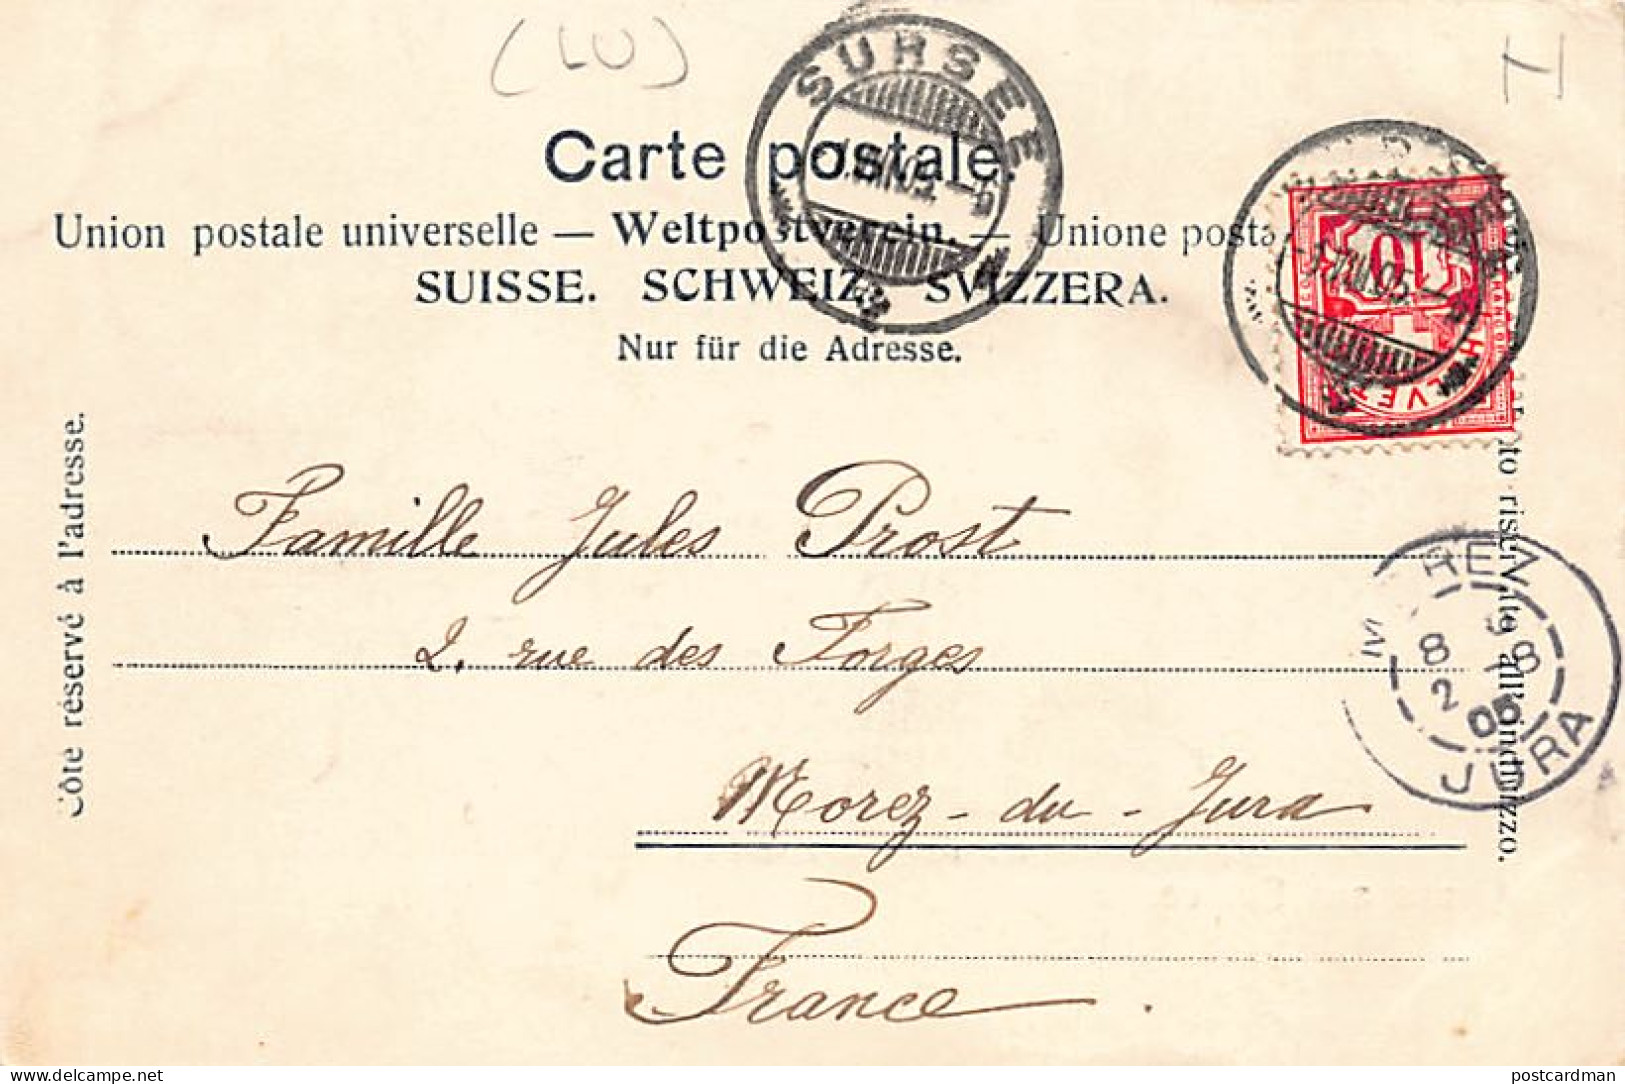 (LU)
SURSEE
Carte postale.
Union postale universelle — Weltpostverein. — Unione posta
SUISSE. SCHWEIZ. SVIZZERA.
Nur für die Adresse.
10
HELVETIA
FRANCO
Côté réservé à l'adresse.
to riservato all'indirizzo.
Famille Jules Prost
2, rue des Forges
Morez-du-Jura
France.
MOREZ
8 2 05
JURA
delcampe.net
postcardman